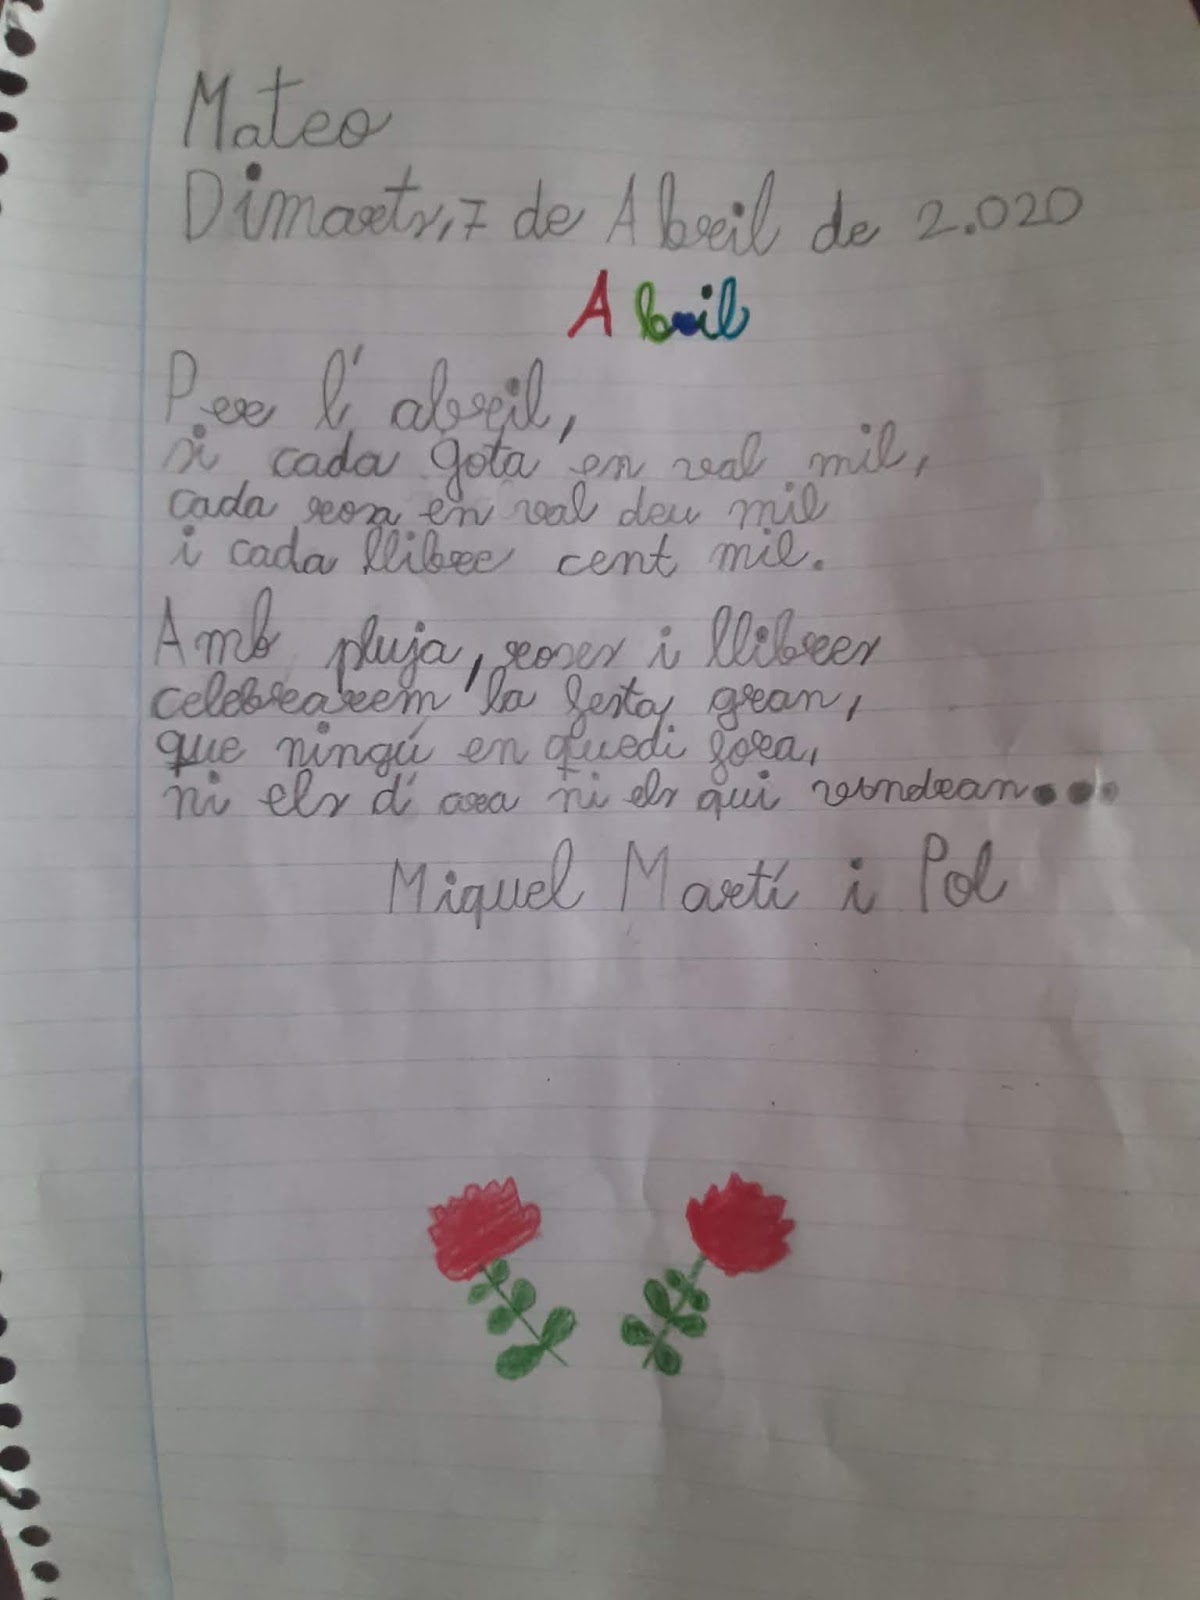 Mateo
Dimarts, 7 de Abril de 2.020
Abril
Per l'abril,
si cada gota en val mil,
cada rosa en val deu mil
i cada llibre cent mil.
Amb pluja, roses i llibres
celebrarem la festa gran,
que ningú en quedi fora,
ni els d'ara ni els qui vendran...
Miquel Martí i Pol